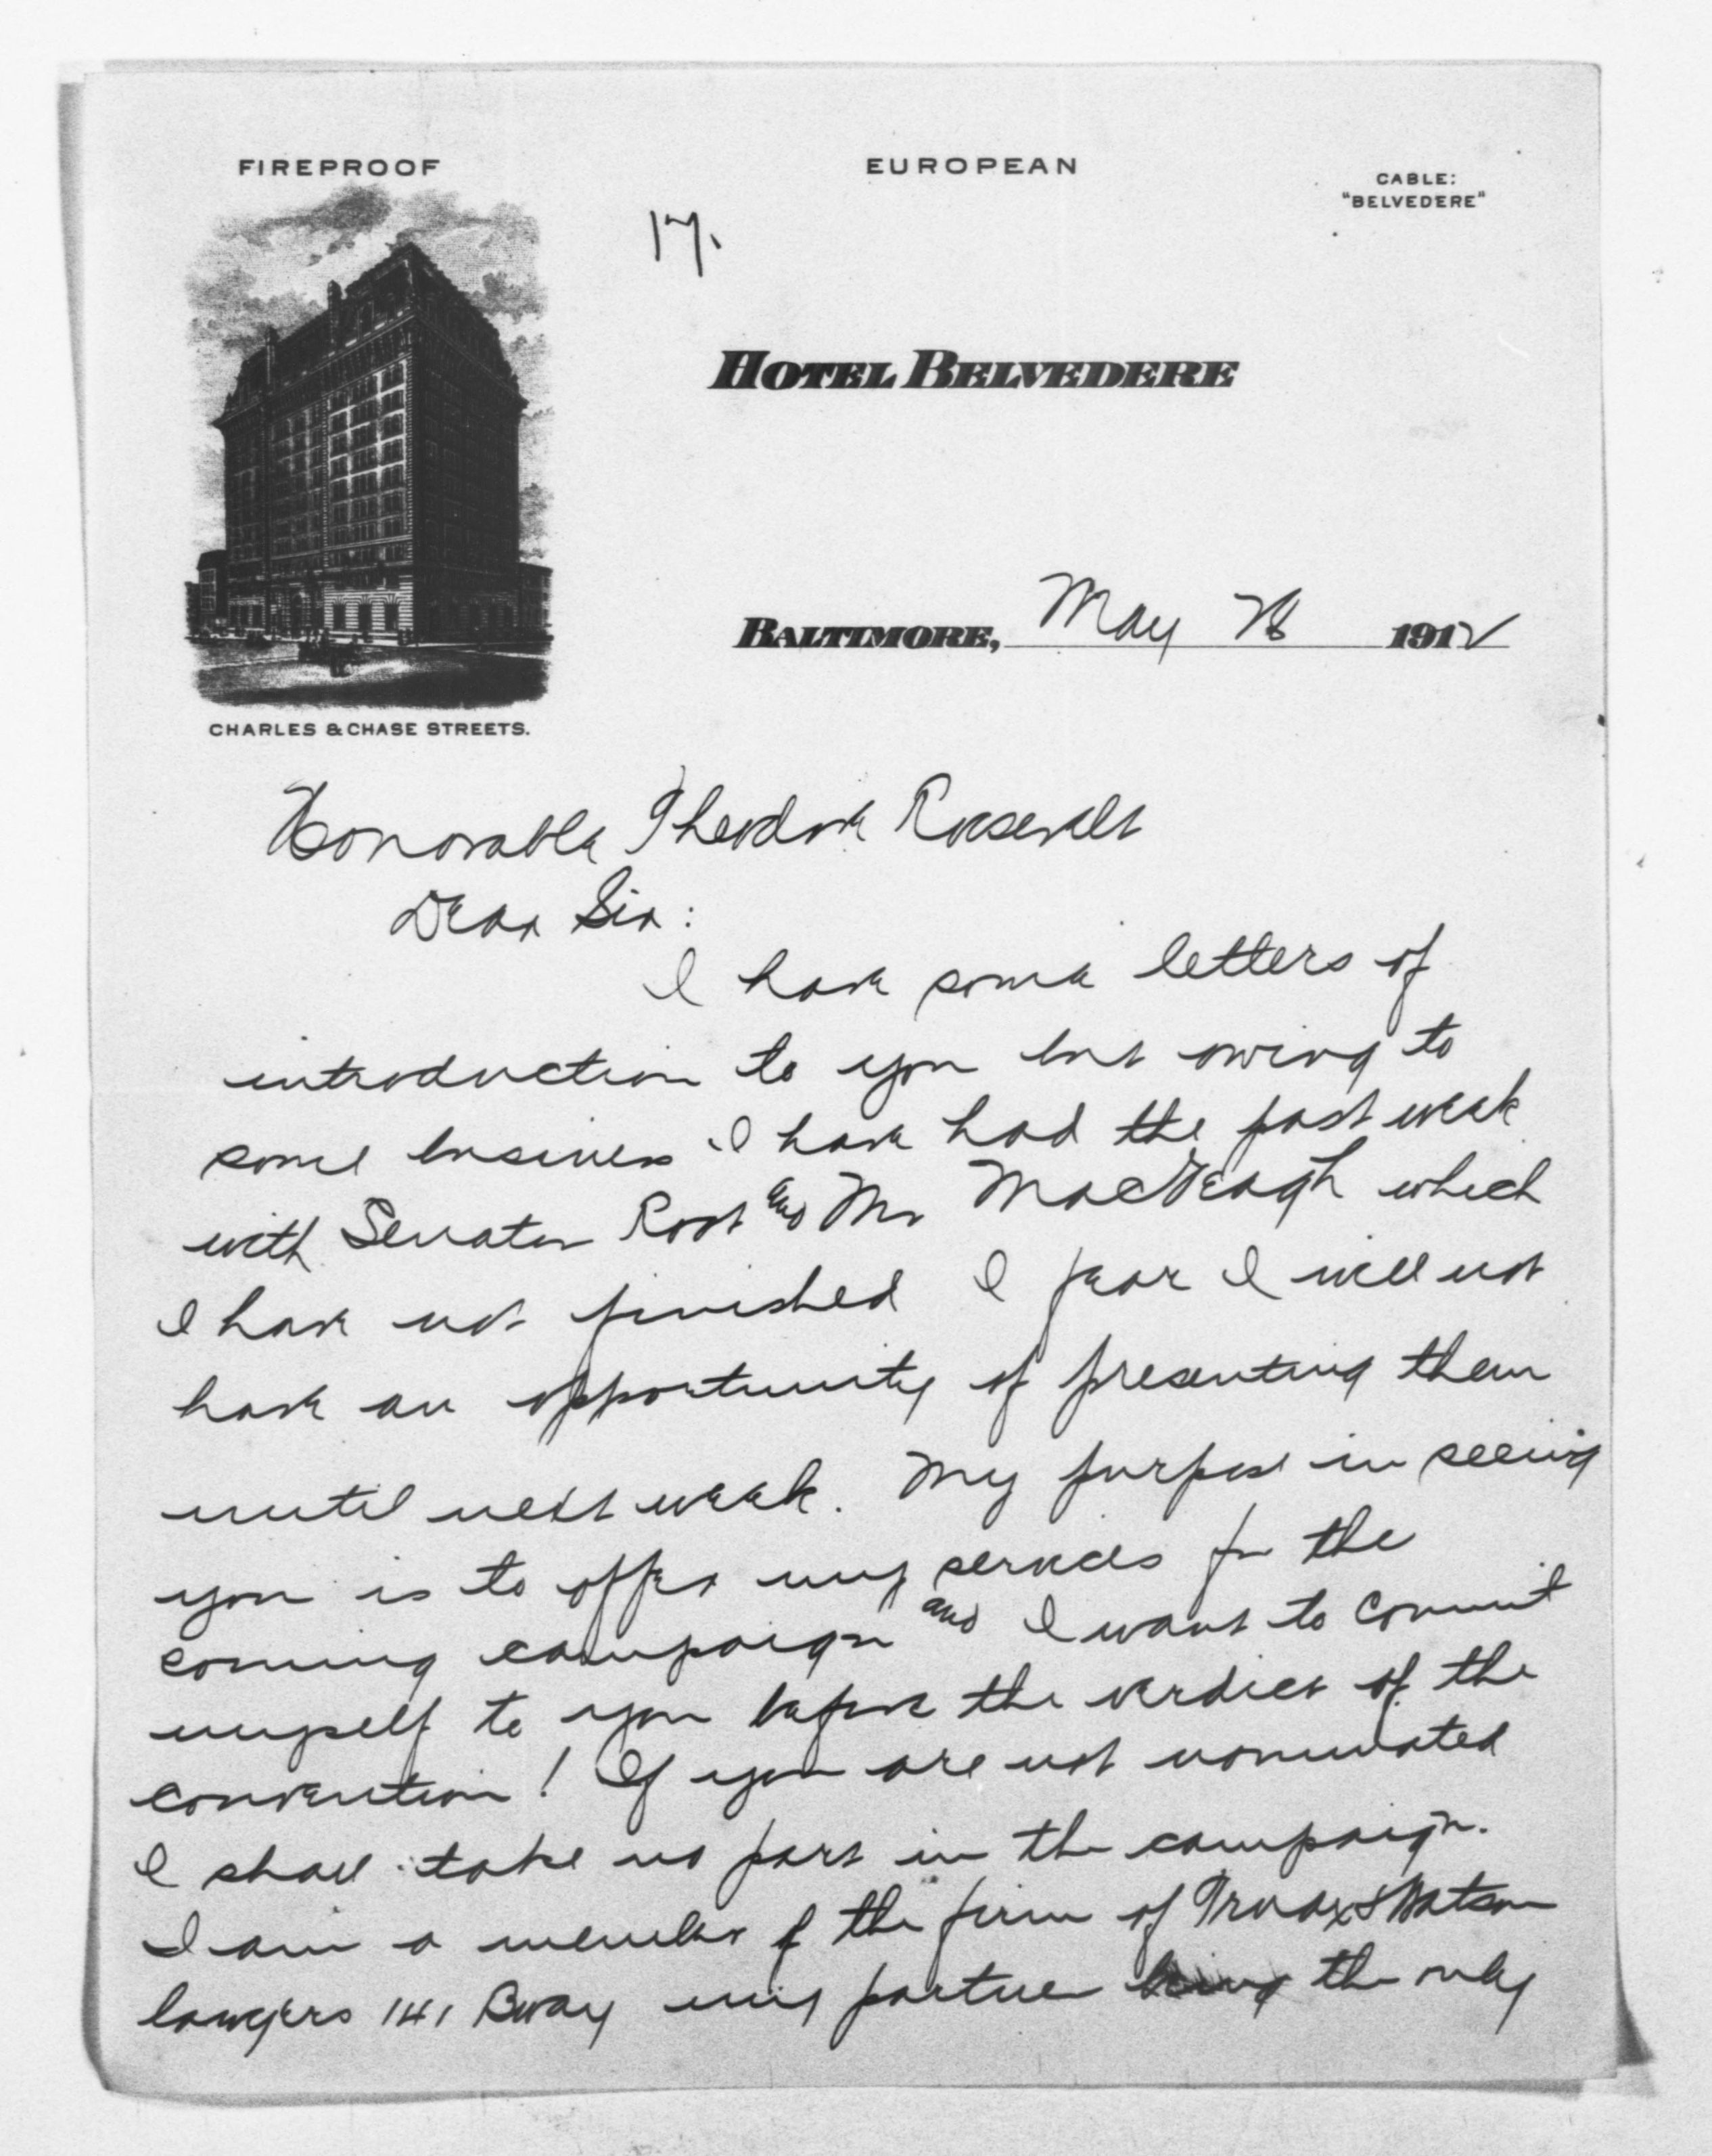 FIREPROOF
EUROPEAN
CABLE:
"BELVEDERE"
17.
HOTEL BELVEDERE
BALTIMORE, May 28 1912
CHARLES & CHASE STREETS.
Honorable Theodore Roosevelt
Dear Sir:
I have some letters of
introduction to you but owing to
some business I have had the past week
with Senator Root and Mr MacVeagh which
I have not finished I fear I will not
have an opportunity of presenting them
until next week. My purpose in seeing
you is to offer my services for the
coming campaign and I want to commit
myself to you before the verdict of the
convention! If you are not nominated
I shall take no part in the campaign.
I am a member of the firm of Truax & Watson
lawyers 141 Bway my partner being the only